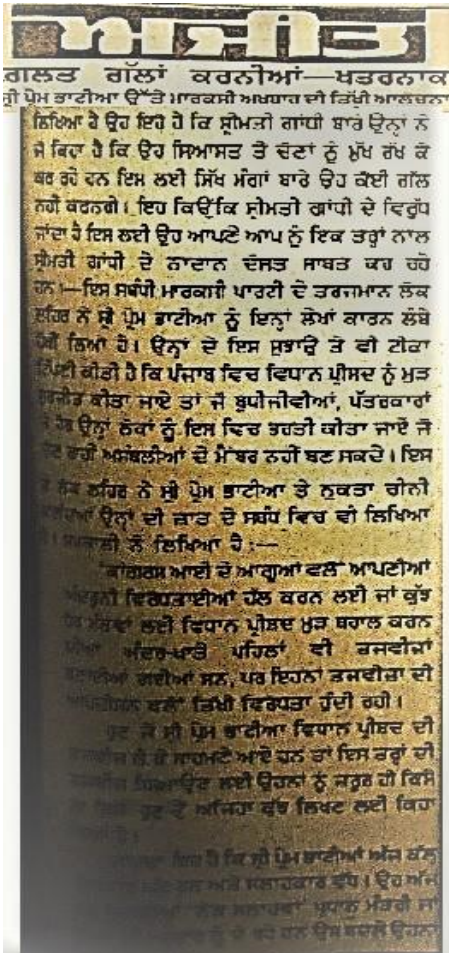 ਅਜੀਤ
ਗਲਤ ਗੱਲਾਂ ਕਰਨੀਆਂ—ਖਤਰਨਾਕ
ਸ੍ਰੀ ਪ੍ਰੇਮ ਭਾਟੀਆ ਉੱਤੇ ਮਾਰਕਸੀ ਅਖਬਾਰ ਦੀ ਤਿੱਖੀ ਆਲੋਚਨਾ
ਲਿਖਿਆ ਹੈ ਉਹ ਇਹ ਹੈ ਕਿ ਸ੍ਰੀਮਤੀ ਗਾਂਧੀ ਬਾਰੇ ਉਨ੍ਹਾਂ ਨੇ
ਜੋ ਕਿਹਾ ਹੈ ਕਿ ਉਹ ਸਿਆਸਤ ਤੇ ਚੋਣਾਂ ਨੂੰ ਮੁੱਖ ਰੱਖ ਕੇ
ਕਰ ਰਹੇ ਹਨ ਇਸ ਲਈ ਸਿੱਖ ਮੰਗਾਂ ਬਾਰੇ ਉਹ ਕੋਈ ਗੱਲ
ਨਹੀਂ ਕਰਨਗੇ। ਇਹ ਕਿਉਂਕਿ ਸ੍ਰੀਮਤੀ ਗਾਂਧੀ ਦੇ ਵਿਰੁੱਧ
ਜਾਂਦਾ ਹੈ ਇਸ ਲਈ ਉਹ ਆਪਣੇ ਆਪ ਨੂੰ ਇਕ ਤਰ੍ਹਾਂ ਨਾਲ
ਸ੍ਰੀਮਤੀ ਗਾਂਧੀ ਦੇ ਨਾਦਾਨ ਦੋਸਤ ਸਾਬਤ ਕਰ ਰਹੇ
ਹਨ।—ਇਸ ਸਬੰਧੀ ਮਾਰਕਸੀ ਪਾਰਟੀ ਦੇ ਤਰਜਮਾਨ ਲੋਕ
ਲਹਿਰ ਨੇ ਸ੍ਰੀ ਪ੍ਰੇਮ ਭਾਟੀਆ ਨੂੰ ਇਨ੍ਹਾਂ ਲੇਖਾਂ ਕਾਰਨ ਲੰਬੇ
ਲਿਆ ਹੈ। ਉਨ੍ਹਾਂ ਦੇ ਇਸ ਸੁਝਾਉ ਤੇ ਵੀ ਟੀਕਾ
ਟਿੱਪਣੀ ਕੀਤੀ ਹੈ ਕਿ ਪੰਜਾਬ ਵਿਚ ਵਿਧਾਨ ਪ੍ਰੀਸ਼ਦ ਨੂੰ ਮੁੜ
ਸੁਰਜੀਤ ਕੀਤਾ ਜਾਏ ਤਾਂ ਜੋ ਬੁਧੀਜੀਵੀਆਂ, ਪੱਤਰਕਾਰਾਂ
ਤੇ ਹੋਰ ਉਨ੍ਹਾਂ ਲੋਕਾਂ ਨੂੰ ਇਸ ਵਿਚ ਭਰਤੀ ਕੀਤਾ ਜਾਏ ਜੋ
ਚੋਣ ਰਾਹੀਂ ਅਸੰਬਲੀਆਂ ਦੇ ਮੈਂਬਰ ਨਹੀਂ ਬਣ ਸਕਦੇ। ਇਸ
ਲਹਿਰ ਨੇ ਸ੍ਰੀ ਪ੍ਰੇਮ ਭਾਟੀਆ ਤੇ ਨੁਕਤਾ ਚੀਨੀ
ਕਰਦਿਆਂ ਉਨ੍ਹਾਂ ਦੀ ਜ਼ਾਤ ਦੇ ਸਬੰਧ ਵਿਚ ਵੀ ਲਿਖਿਆ
ਨੇ ਲਿਖਿਆ ਹੈ :—
'ਕਾਂਗਰਸ ਆਈ ਦੇ ਆਗੂਆਂ ਵਲੋਂ ਆਪਣੀਆਂ
ਅੰਦਰੂਨੀ ਵਿਰੋਧਤਾਈਆਂ ਹੱਲ ਕਰਨ ਲਈ ਜਾਂ ਕੁੱਝ
ਹੋਰ ਲਈ ਵਿਧਾਨ ਪ੍ਰੀਸ਼ਦ ਮੁੜ ਬਹਾਲ ਕਰਨ
ਦੀਆਂ ਅੰਦਰ-ਖਾਤੇ ਪਹਿਲਾਂ ਵੀ ਤਜਵੀਜ਼ਾਂ
ਗਈਆਂ ਸਨ, ਪਰ ਇਹਨਾਂ ਤਜਵੀਜ਼ਾਂ ਦੀ
ਵਲੋਂ ਤਿੱਖੀ ਵਿਰੋਧਤਾ ਹੁੰਦੀ ਰਹੀ।
ਹੁਣ ਜੇ ਸ੍ਰੀ ਪ੍ਰੇਮ ਭਾਟੀਆ ਵਿਧਾਨ ਪ੍ਰੀਸ਼ਦ ਦੀ
ਤਜਵੀਜ਼ ਲੈ ਕੇ ਸਾਹਮਣੇ ਆਏ ਹਨ ਤਾਂ ਇਸ ਤਰ੍ਹਾਂ ਦੀ
ਲਈ ਉਹਨਾਂ ਨੂੰ ਜ਼ਰੂਰ ਹੀ ਕਿਸੇ
ਅਜਿਹਾ ਕੁੱਝ ਲਿਖਣ ਲਈ ਕਿਹਾ
ਇਹ ਹੈ ਕਿ ਸ੍ਰੀ ਪ੍ਰੇਮ ਭਾਟੀਆ ਅੱਜ ਕੱਲ
ਅਤੇ ਸਲਾਹਕਾਰ ਵੱਧ। ਉਹ ਅੱਜ
ਪ੍ਰਧਾਨ ਮੰਤਰੀ ਜਾਂ
ਨੂੰ ਦੇ ਰਹੇ ਹਨ